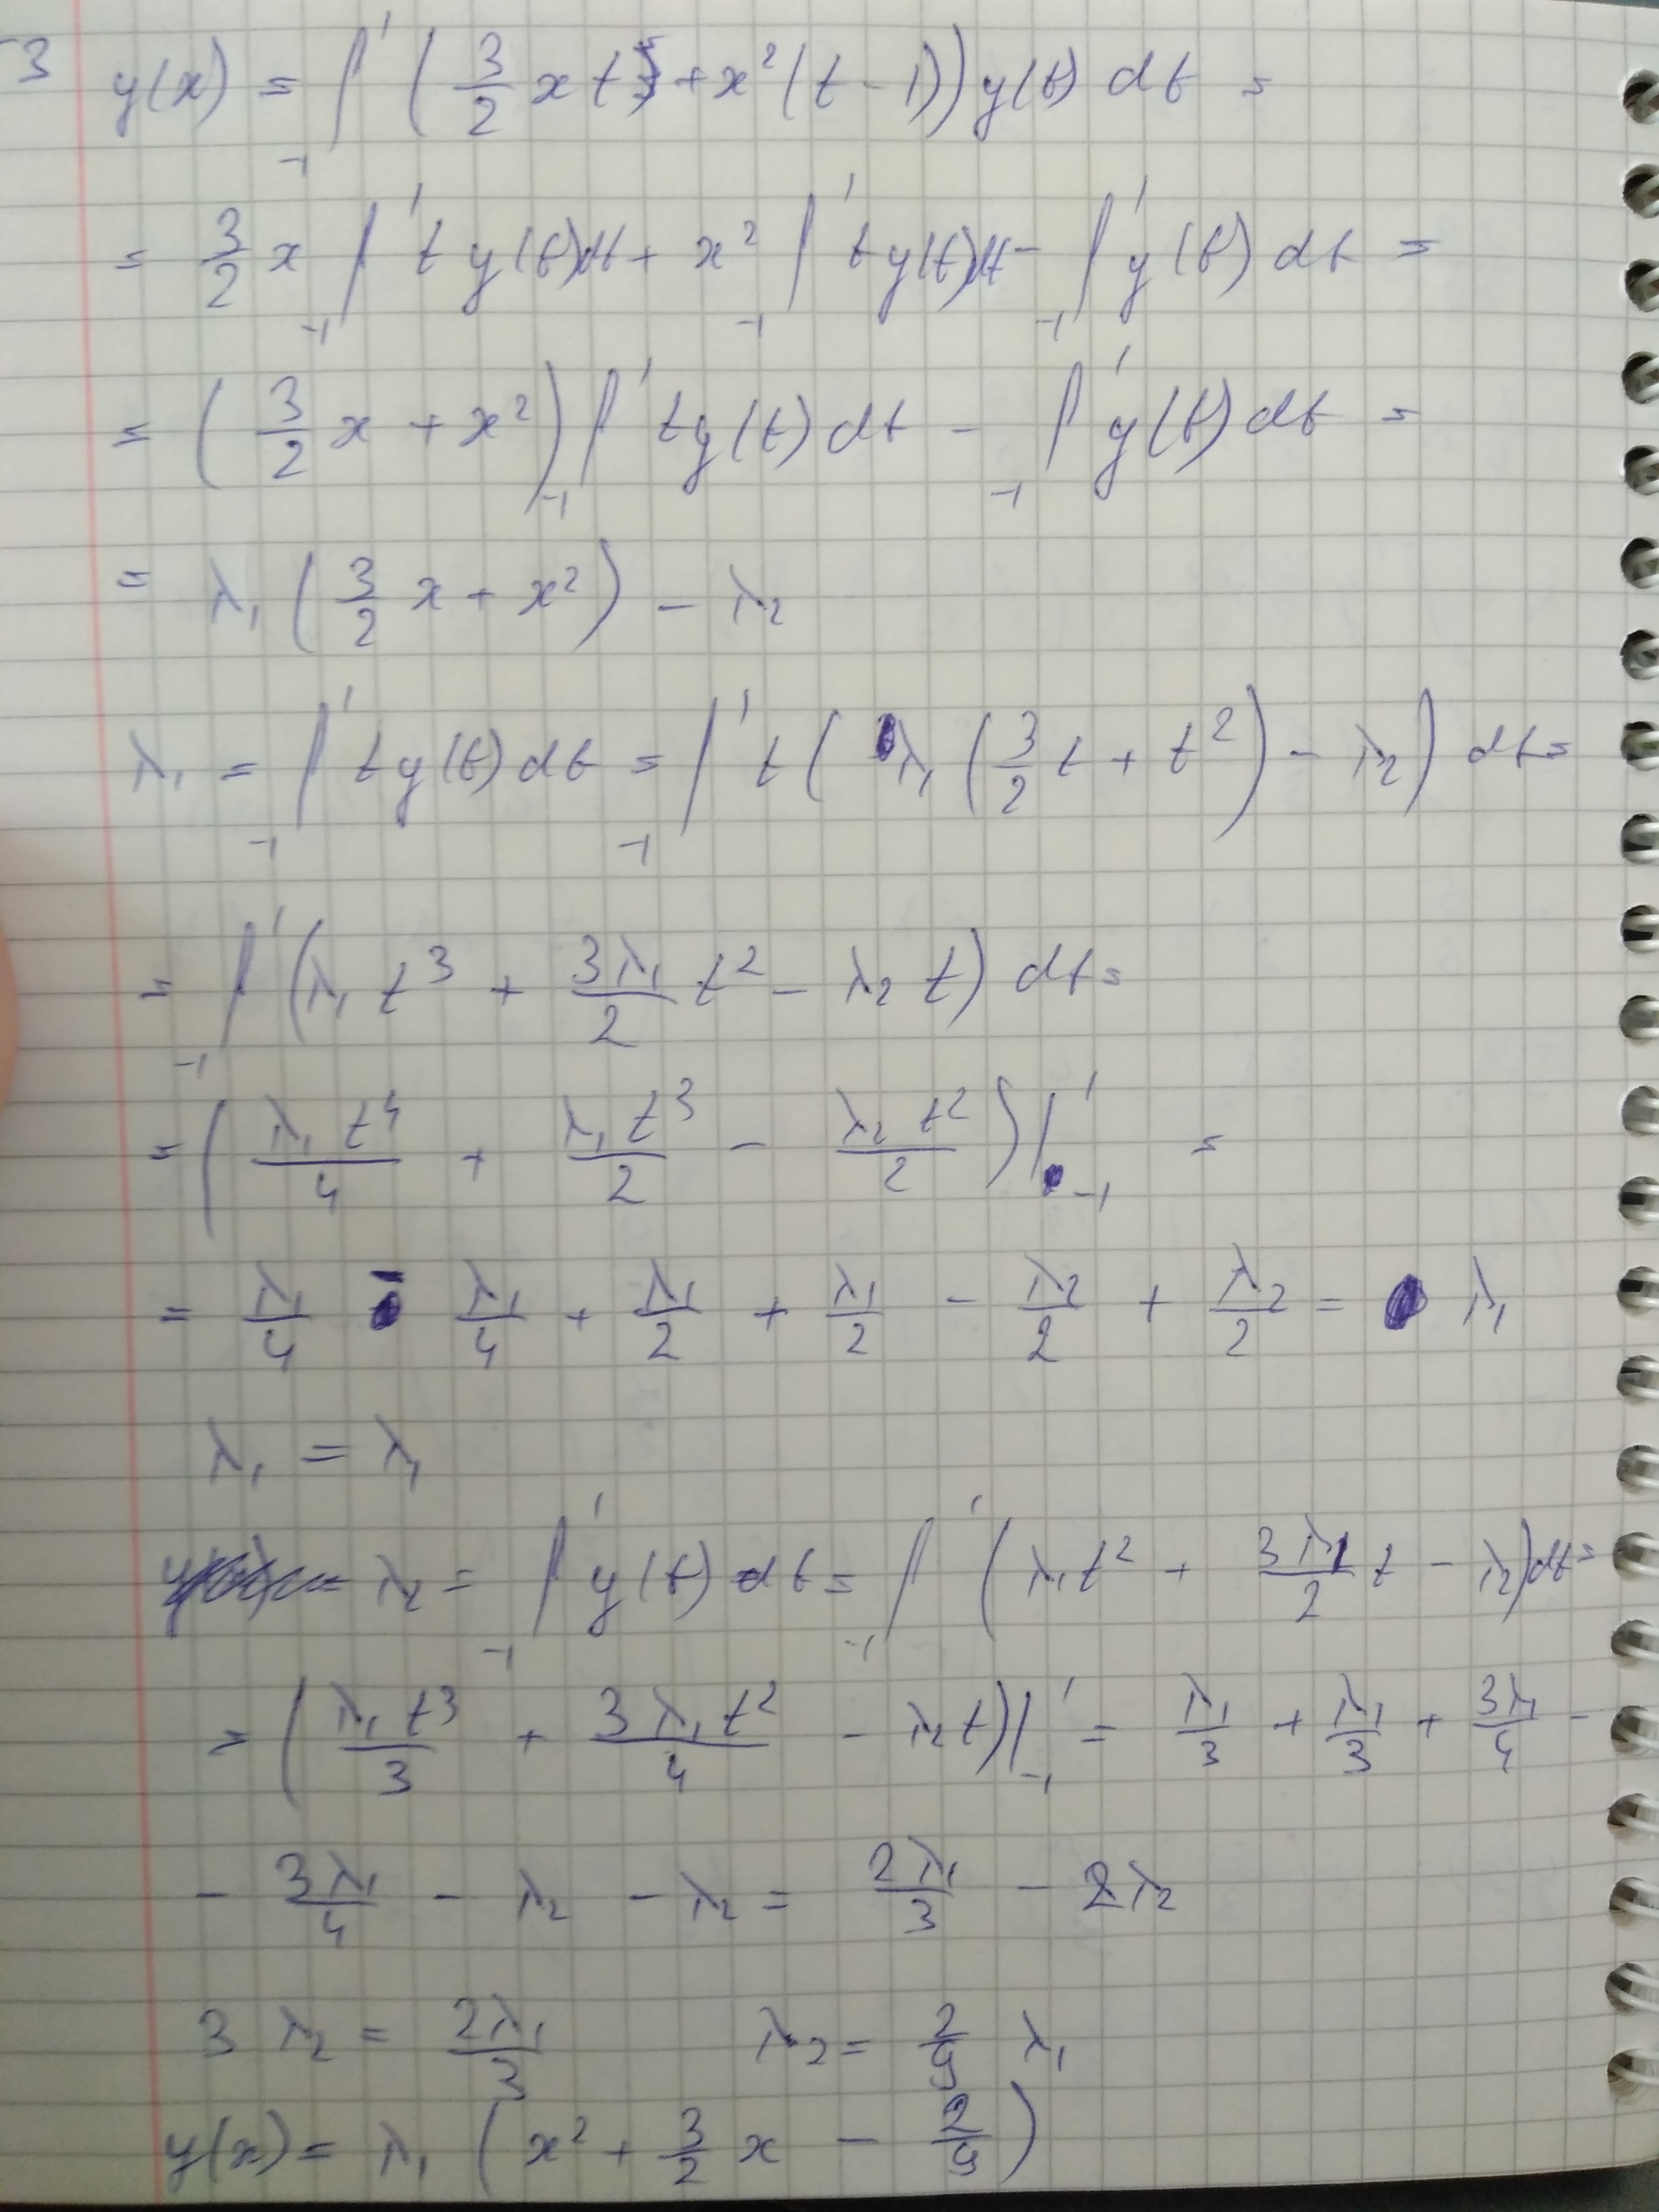 3 y(x) = ∫₋₁¹ (3/2 x t + x² (t - 1)) y(t) dt =
= 3/2 x ∫₋₁¹ t y(t) dt + x² ∫₋₁¹ t y(t) dt - ∫₋₁¹ y(t) dt =
= (3/2 x + x²) ∫₋₁¹ t y(t) dt - ∫₋₁¹ y(t) dt =
= λ₁ (3/2 x + x²) - λ₂
λ₁ = ∫₋₁¹ t y(t) dt = ∫₋₁¹ t (λ₁ (3/2 t + t²) - λ₂) dt =
= ∫₋₁¹ (λ₁ t³ + 3λ₁/2 t² - λ₂ t) dt =
= (λ₁ t⁴/4 + λ₁ t³/2 - λ₂ t²/2) |₋₁¹ =
= λ₁/4 - λ₁/4 + λ₁/2 + λ₁/2 - λ₂/2 + λ₂/2 = λ₁
λ₁ = λ₁
λ₂ = ∫₋₁¹ y(t) dt = ∫₋₁¹ (λ₁ t² + 3λ₁/2 t - λ₂) dt =
= (λ₁ t³/3 + 3 λ₁ t²/4 - λ₂ t) |₋₁¹ = λ₁/3 + λ₁/3 + 3λ₁/4 -
- 3λ₁/4 - λ₂ - λ₂ = 2λ₁/3 - 2λ₂
3 λ₂ = 2λ₁/3 λ₂ = 2/9 λ₁
y(x) = λ₁ (x² + 3/2 x - 2/9)